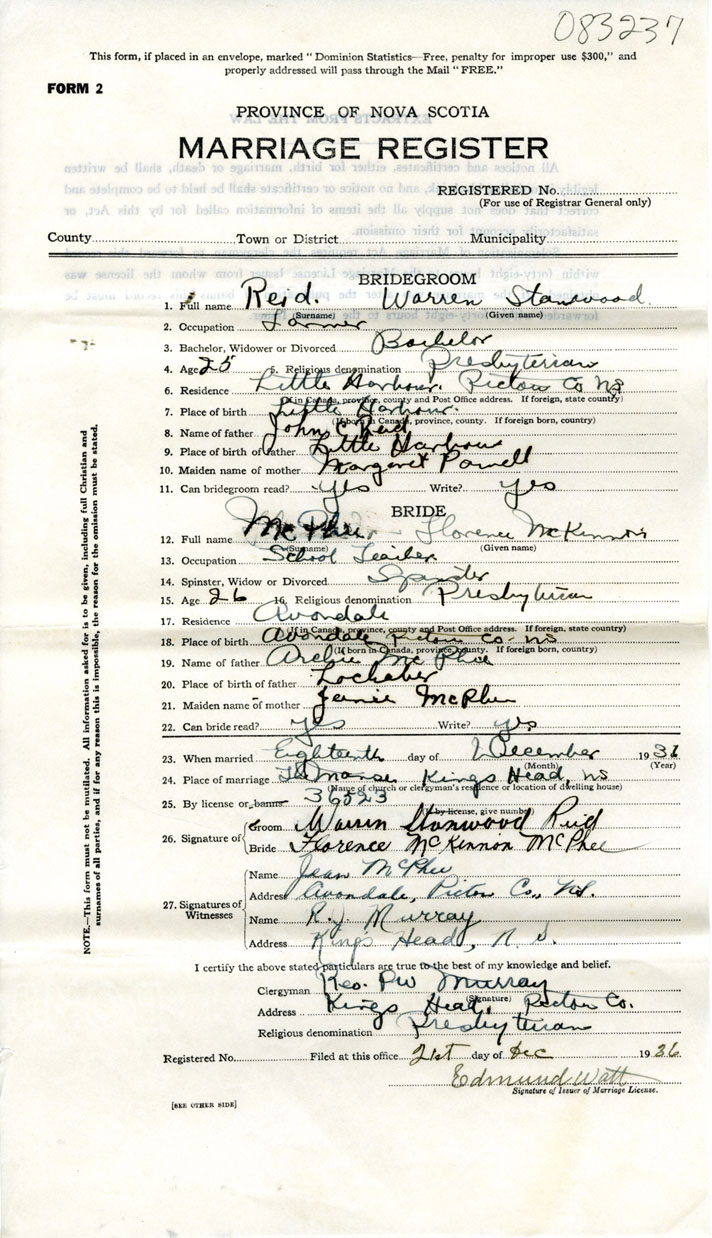 083237
This form, if placed in an envelope, marked "Dominion Statistics—Free, penalty for improper use $300," and
properly addressed will pass through the Mail "FREE."
FORM 2
PROVINCE OF NOVA SCOTIA
MARRIAGE REGISTER
REGISTERED No.
(For use of Registrar General only)
County Town or District Municipality
BRIDEGROOM
1. Full name Reid. Warren Stanwood
(Surname) (Given name)
2. Occupation Farmer
3. Bachelor, Widower or Divorced Bachelor
4. Age 25 5. Religious denomination Presbyterian
6. Residence Little Harbour. Pictou Co NS
(If in Canada, province, county and Post Office address. If foreign, state country)
7. Place of birth Little Harbour.
(If born in Canada, province, county. If foreign born, country)
8. Name of father John C Reid
9. Place of birth of father Little Harbour
10. Maiden name of mother Margaret Powell
11. Can bridegroom read? yes Write? yes
BRIDE
12. Full name McPhee Florence McKinnon
(Surname) (Given name)
13. Occupation School Teacher
14. Spinster, Widow or Divorced Spinster
15. Age 26 16. Religious denomination Presbyterian
17. Residence Avondale
(If in Canada, province, county and Post Office address. If foreign, state country)
18. Place of birth Avondale Pictou Co. NS
(If born in Canada, province, county. If foreign born, country)
19. Name of father Archie McPhee
20. Place of birth of father Lochaber
21. Maiden name of mother Janie McPhee
22. Can bride read? yes Write? yes
23. When married Eighteenth day of December 1936
(Month) (Year)
24. Place of marriage The Manse Kings Head, NS
(Name of church or clergyman's residence or location of dwelling house)
25. By license or banns 36523
(If by license, give number)
26. Signature of Groom Warren Stanwood Reid
Bride Florence McKinnon McPhee
27. Signatures of Witnesses Name Jean McPhee
Address Avondale, Pictou Co., N.S.
Name R. J. Murray
Address King's Head, N.S.
I certify the above stated particulars are true to the best of my knowledge and belief.
Clergyman Murray
(Signature)
Address Kings Head, Pictou Co.
Religious denomination Presbyterian
Registered No. Filed at this office 21st day of Dec 1936
Edmund Watt
Signature of Issuer of Marriage License.
[SEE OTHER SIDE]
NOTE.—This form must not be mutilated. All information asked for is to be given, including full Christian and
surnames of all parties, and if for any reason this is impossible, the reason for the omission must be stated.